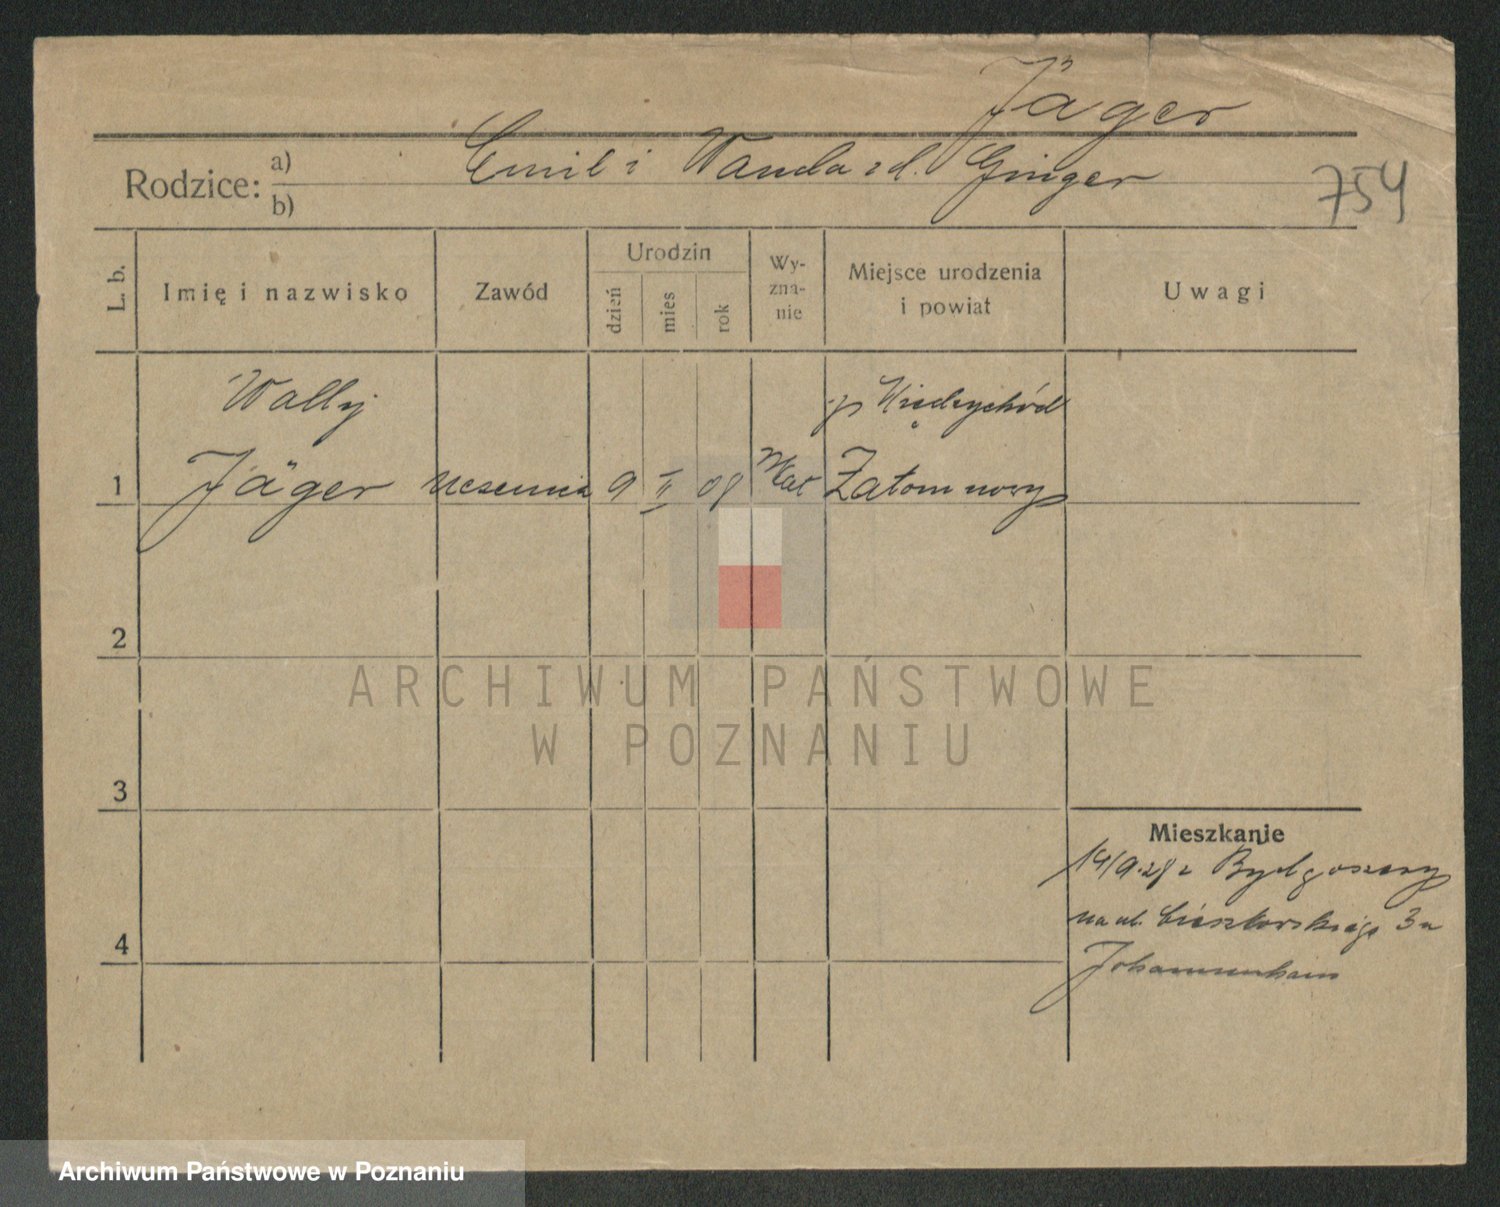 Jäger
Rodzice: a) b)
Emil i Wanda zd. Ginger
754
L. b.
Imię i nazwisko
Zawód
Urodzin
dzień
mies
rok
Wy-
zna-
nie
Miejsce urodzenia
i powiat
Uwagi
Wally
p Międzychód
1 Jäger uczennia 9 II 08 Kat Zatom nowy
2
3
4
Mieszkanie
14/9.28 z Bydgoszczy
na ul. 3a
ARCHIWUM PAŃSTWOWE
W POZNANIU
Archiwum Państwowe w Poznaniu